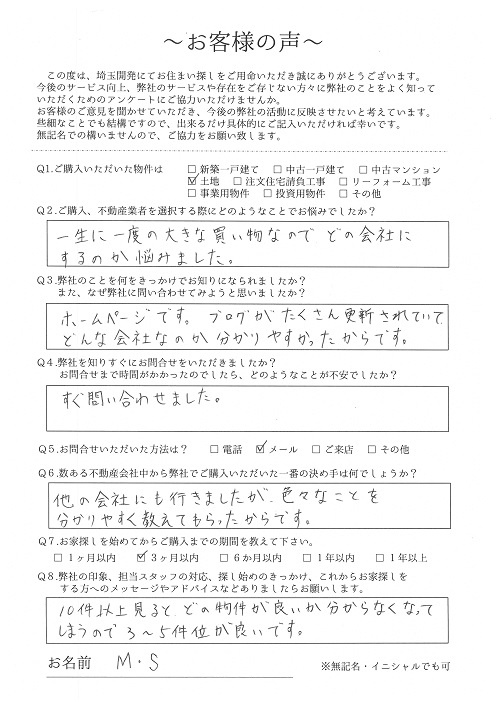 ～お客様の声～
この度は、埼玉開発にてお住まい探しをご用命いただき誠にありがとうございます。
今後のサービス向上、弊社のサービスや存在をご存じない方々に弊社のことをよく知って
いただくためのアンケートにご協力いただけませんか。
お客様のご意見を聞かせていただき、今後の弊社の活動に反映させたいと考えています。
些細なことでも結構ですので、出来るだけ具体的にご記入いただければ幸いです。
無記名での構いませんので、ご協力をお願い致します。
Q1.ご購入いただいた物件は □新築一戸建て □中古一戸建て □中古マンション
☑土地 □注文住宅請負工事 □リーフォーム工事
□事業用物件 □投資用物件 □その他
Q2.ご購入、不動産業者を選択する際にどのようなことでお悩みでしたか？
一生に一度の大きな買い物なので どの会社に
するのか悩みました。
Q3.弊社のことを何をきっかけでお知りになられましたか？
また、なぜ弊社に問い合わせてみようと思いましたか？
ホームページです。 ブログがたくさん更新されていて
どんな会社なのか分かりやすかったからです。
Q4.弊社を知りすぐにお問合せをいただきましたか？
お問合せまで時間がかかったのでしたら、どのようなことが不安でしたか？
すぐ問い合わせました。
Q5.お問合せいただいた方法は？ □電話 ☑メール □ご来店 □その他
Q6.数ある不動産会社中から弊社でご購入いただいた一番の決め手は何でしょうか？
他の会社にも行きましたが、色々なことを
分かりやすく教えてもらったからです。
Q7.お家探しを始めてからご購入までの期間を教えて下さい。
□1ヶ月以内 ☑3ヶ月以内 □6か月以内 □1年以内 □1年以上
Q8.弊社の印象、担当スタッフの対応、探し始めのきっかけ、これからお家探しを
する方へのメッセージやアドバイスなどありましたらお願します。
10件以上見ると どの物件が良いか分からなくなって
しまうので 3～5件位が良いです。
お名前 M・S ※無記名・イニシャルでも可